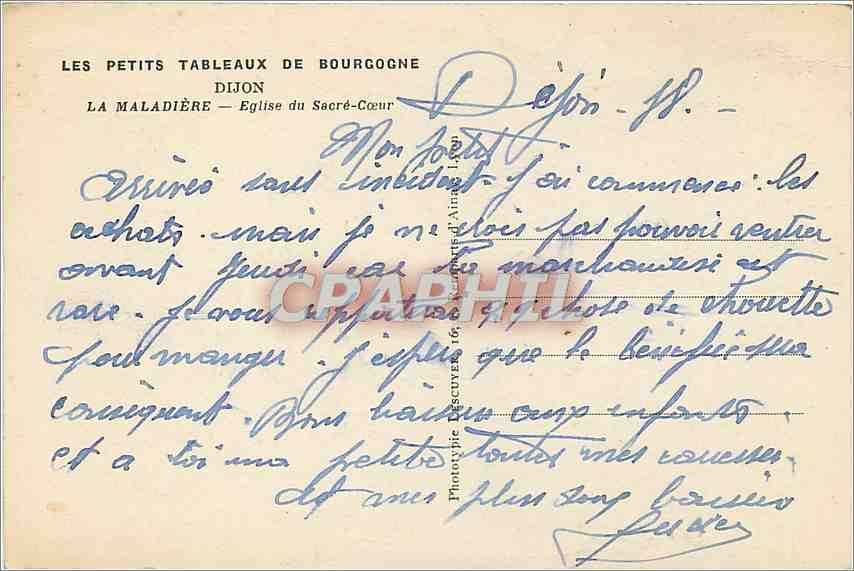 LES PETITS TABLEAUX DE BOURGOGNE
DIJON
LA MALADIÈRE — Eglise du Sacré-Cœur
Dijon - 18. -
Mon petit
Arrivés sans incident. J'ai commencé les
achats. mais je ne crois pas pouvoir rentrer
avant Jeudi car la marchandise est
rare. Je vous apporterai qq chose de chouette
pour manger. J'espère que le bénéfice sera
conséquent. Bons baisers aux enfants.
et à toi ma petite toutes mes caresses.
et mes plus doux baisers
CPAPHTI
Phototypie LESCUYER, 16, Remparts d'Ainay, Lyon